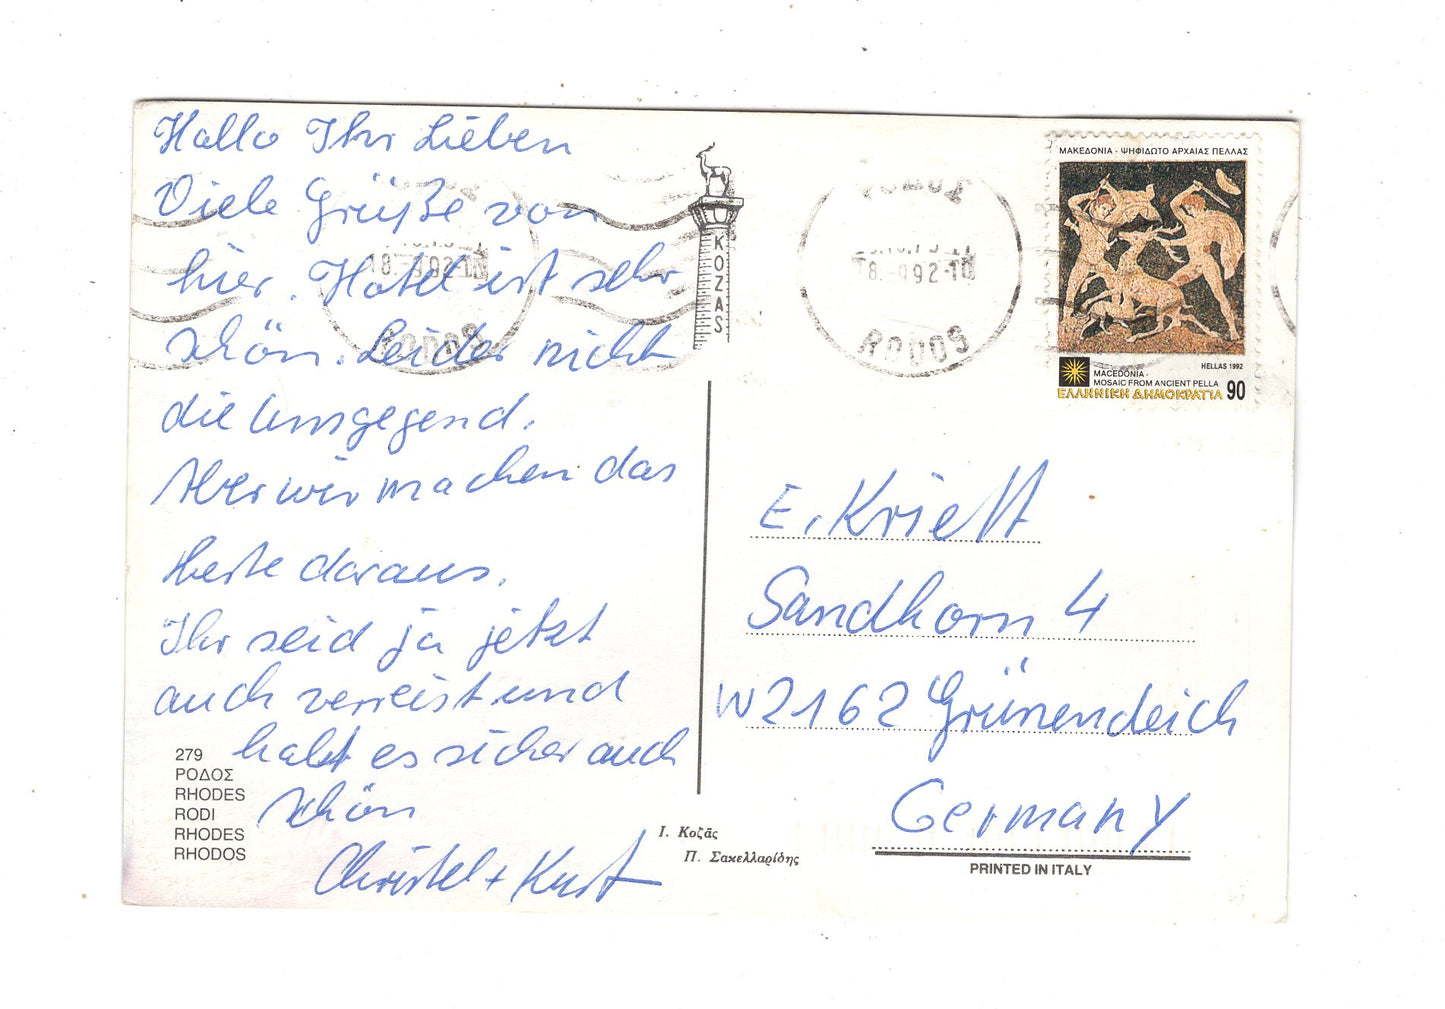 Hallo Ihr Lieben
Viele Grüße von
hier. Hotel ist sehr
schön. Leider nicht
die Umgegend.
Aber wir machen das
Beste daraus.
Ihr seid ja jetzt
auch verreist und
habt es sicher auch
schön
Christel + Kurt
279
ΡΟΔΟΣ
RHODES
RODI
RHODES
RHODOS
KOZAS
Ι. Κοζᾶς
Π. Σακελλαρίδης
18.-9.92-10
RODOS
18.-9.92-10
RODOS
ΜΑΚΕΔΟΝΙΑ - ΨΗΦΙΔΩΤΟ ΑΡΧΑΙΑΣ ΠΕΛΛΑΣ
HELLAS 1992
MACEDONIA -
MOSAIC FROM ANCIENT PELLA
ΕΛΛΗΝΙΚΗ ΔΗΜΟΚΡΑΤΙΑ 90
E. Krie
Sandhorn 4
W 2162 Grünendeich
Germany
PRINTED IN ITALY